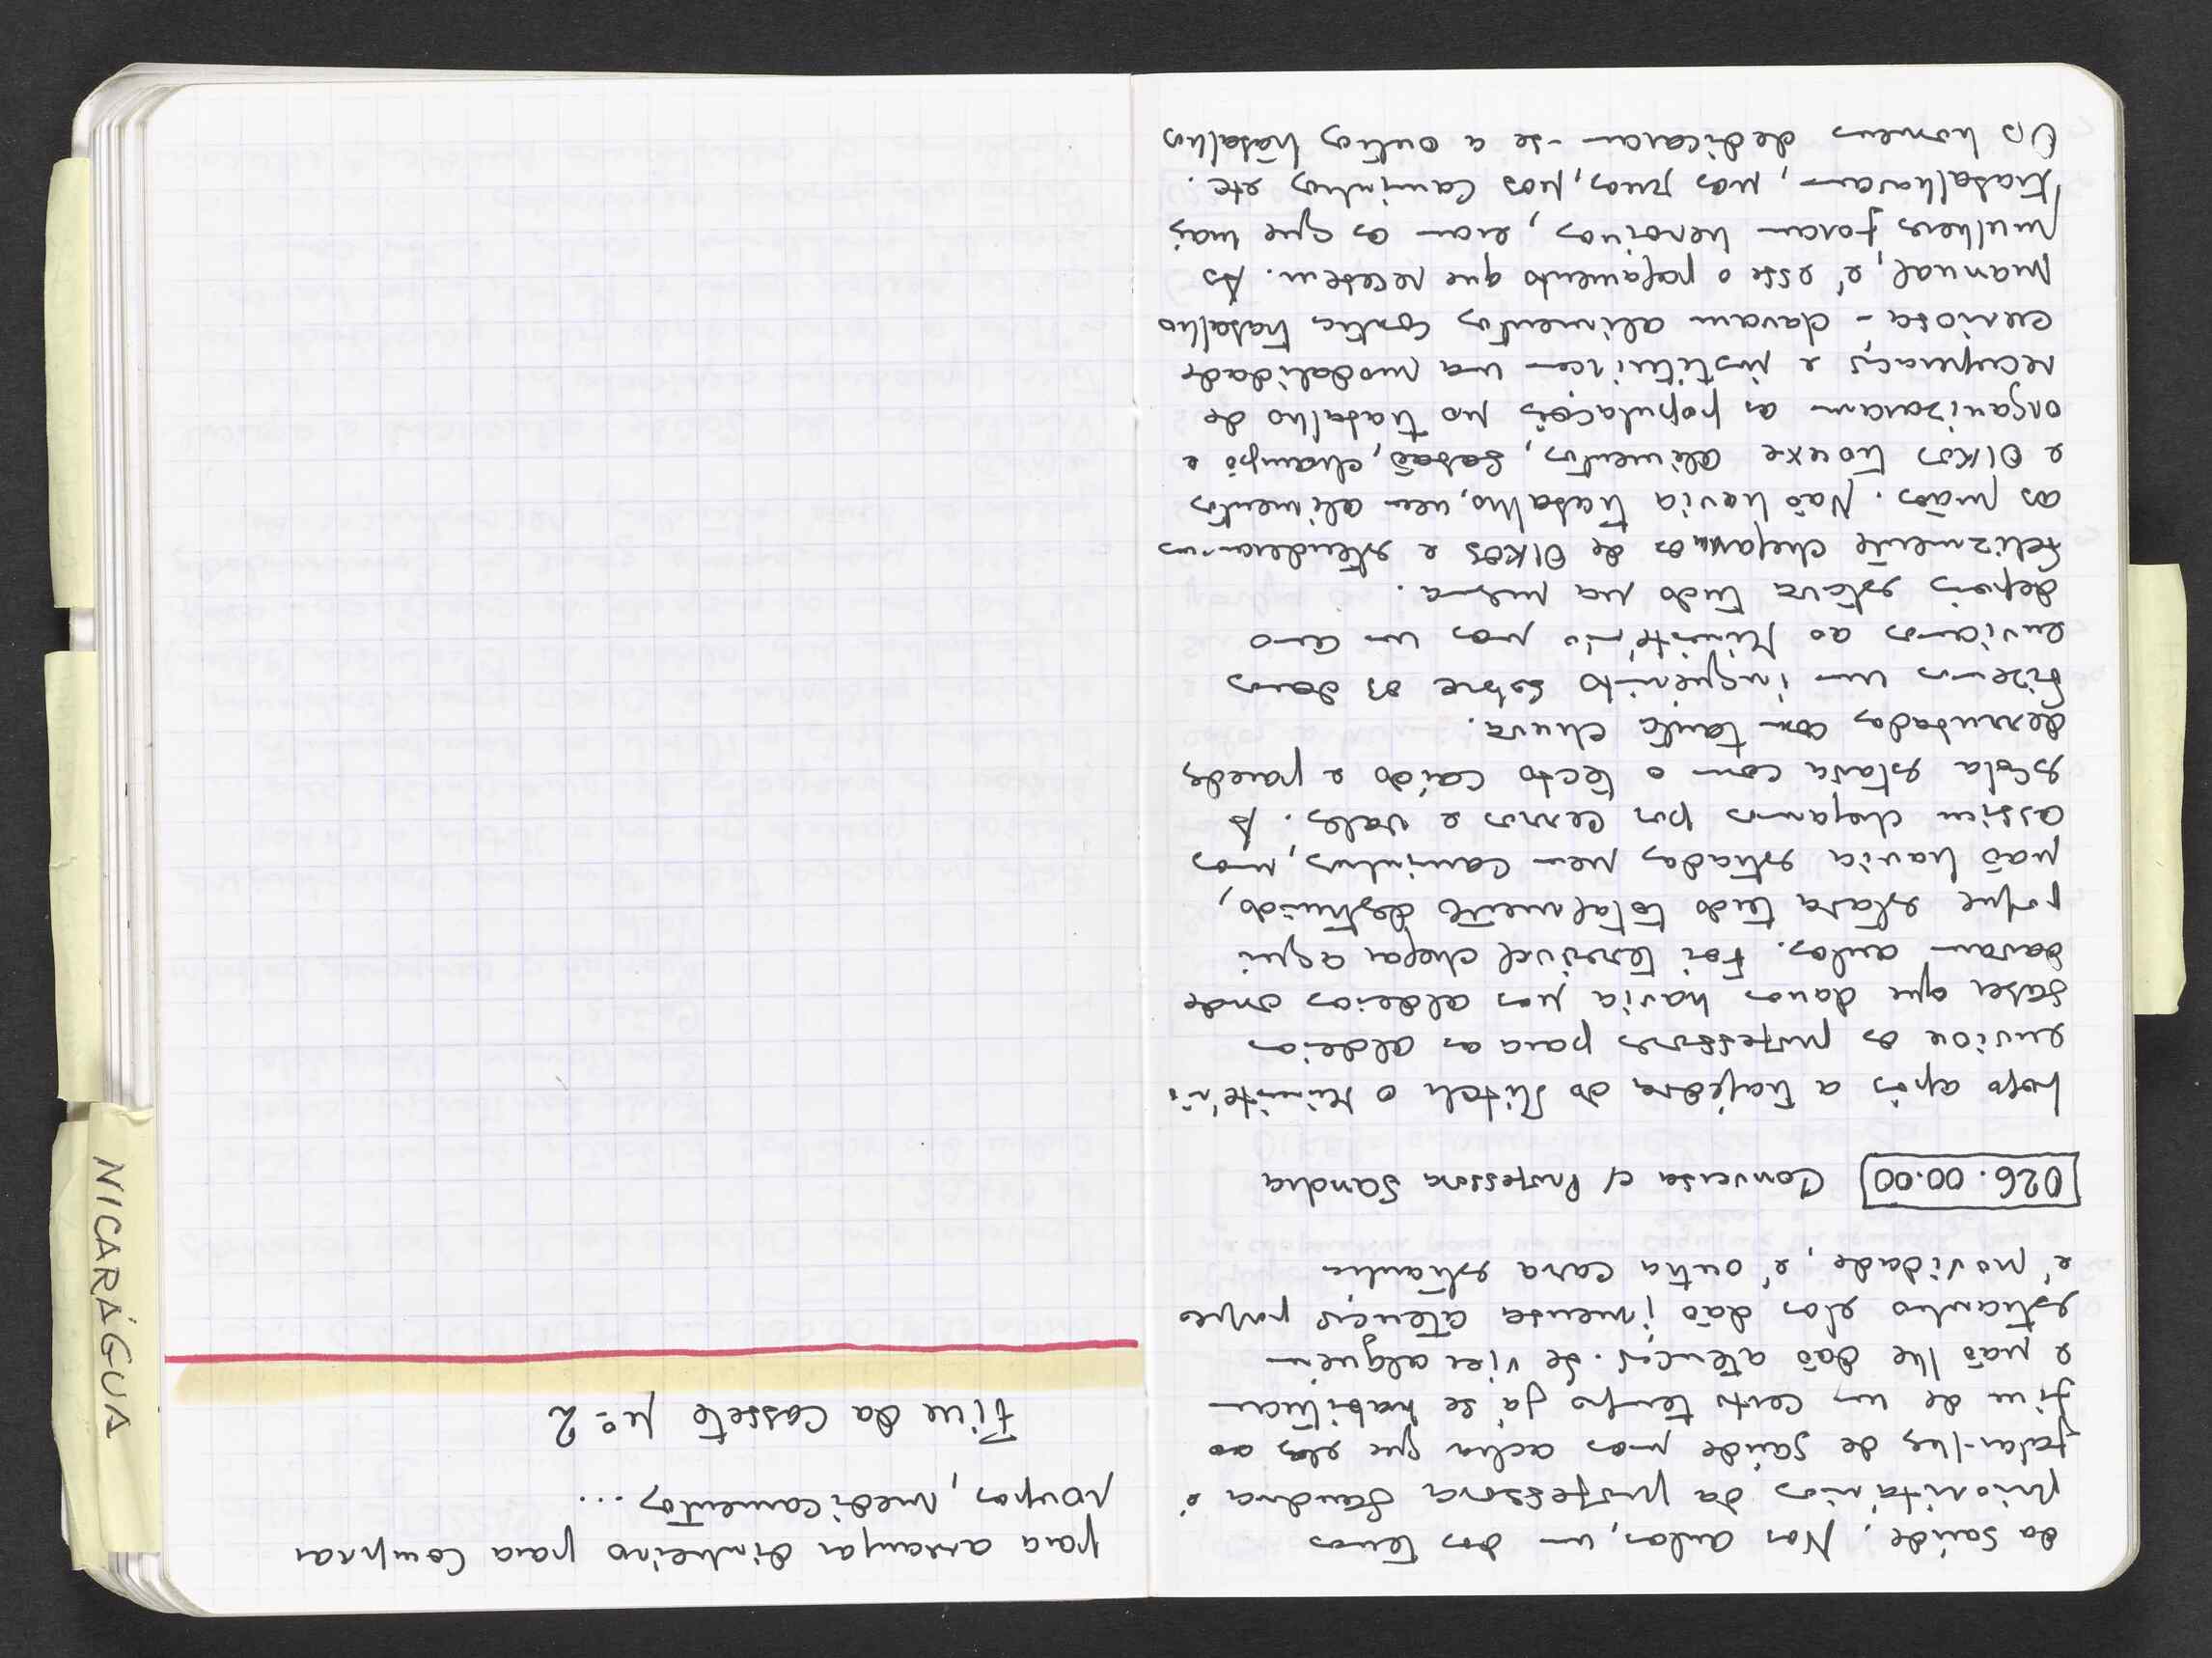 da saúde. Nas aulas, um dos temas
prioritários da professora Sandra é
falar-lhes de saúde mas acha que eles ao
fim de um certo tempo já se habituam
e não lhe dão atenção. Se vier alguém
estranho elas dão imensa atenção porque
é novidade, é outra cara estranha
026.00.00 Conversa c/ Professora Sandra
Logo após a tragédia do Mitch o Ministério
enviou os professores para as aldeias
saber que danos havia nas aldeias onde
davam aulas. Foi terrível chegar aqui
porque estava tudo totalmente destruído,
não havia estradas nem caminhos, mas
assim chegamos por cerros e vales. A
escola estava com o tecto caído e paredes
derrubadas com tanta chuva.
Fizemos um inquérito sobre os danos
enviamos ao Ministério mas um ano
depois estava tudo na mesma.
Felizmente chegamos de OIKOS e estenderam-nos
as mãos. Não havia trabalho, nem alimentos
e OIKOS trouxe alimentos, sabão, champô e
organizaram as populações no trabalho de
recuperação e instituiram uma modalidade
curiosa - davam alimentos contra trabalho
manual, é esse o pagamento que recebem. As
mulheres foram heroínas, eram as que mais
trabalhavam, nas ruas, nos caminhos etc.
Os homens dedicaram-se a outros trabalhos
para arranjar dinheiro para comprar
roupas, medicamentos...
Fim da cassete nº 2
NICARÁGUA